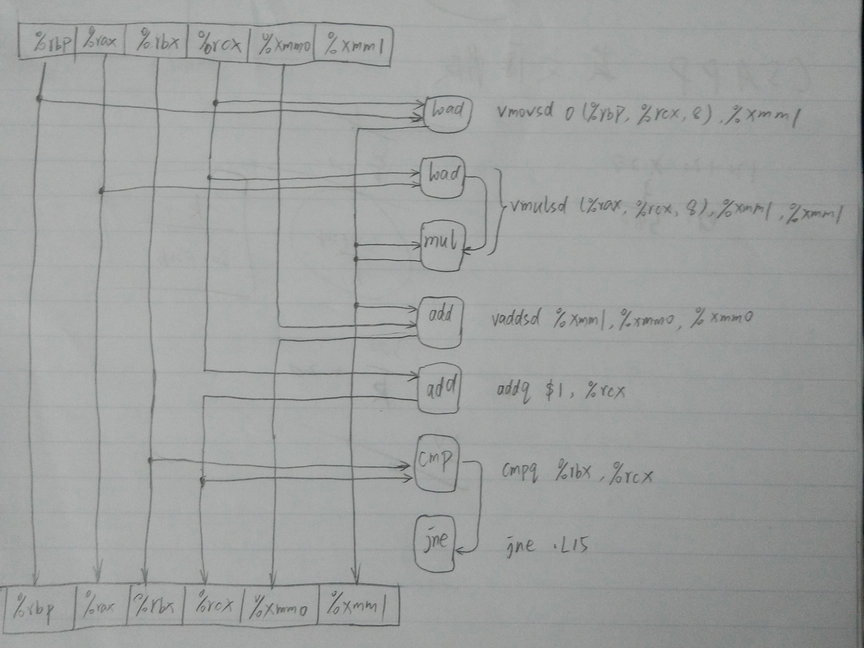 %rbp %rax %rbx %rcx %xmm0 %xmm1
load vmovsd 0(%rbp, %rcx, 8), %xmm1
load
vmulsd (%rax, %rcx, 8), %xmm1, %xmm1
mul
add vaddsd %xmm1, %xmm0, %xmm0
add addq $1, %rcx
cmp cmpq %rbx, %rcx
jne jne .L15
%rbp %rax %rbx %rcx %xmm0 %xmm1